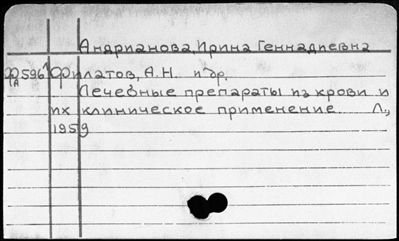 Андрианова, Ирина Геннадиевна
Филатов, А.Н. и др.
Лечебные препараты из крови и
их клиническое применение. Л.,
1959